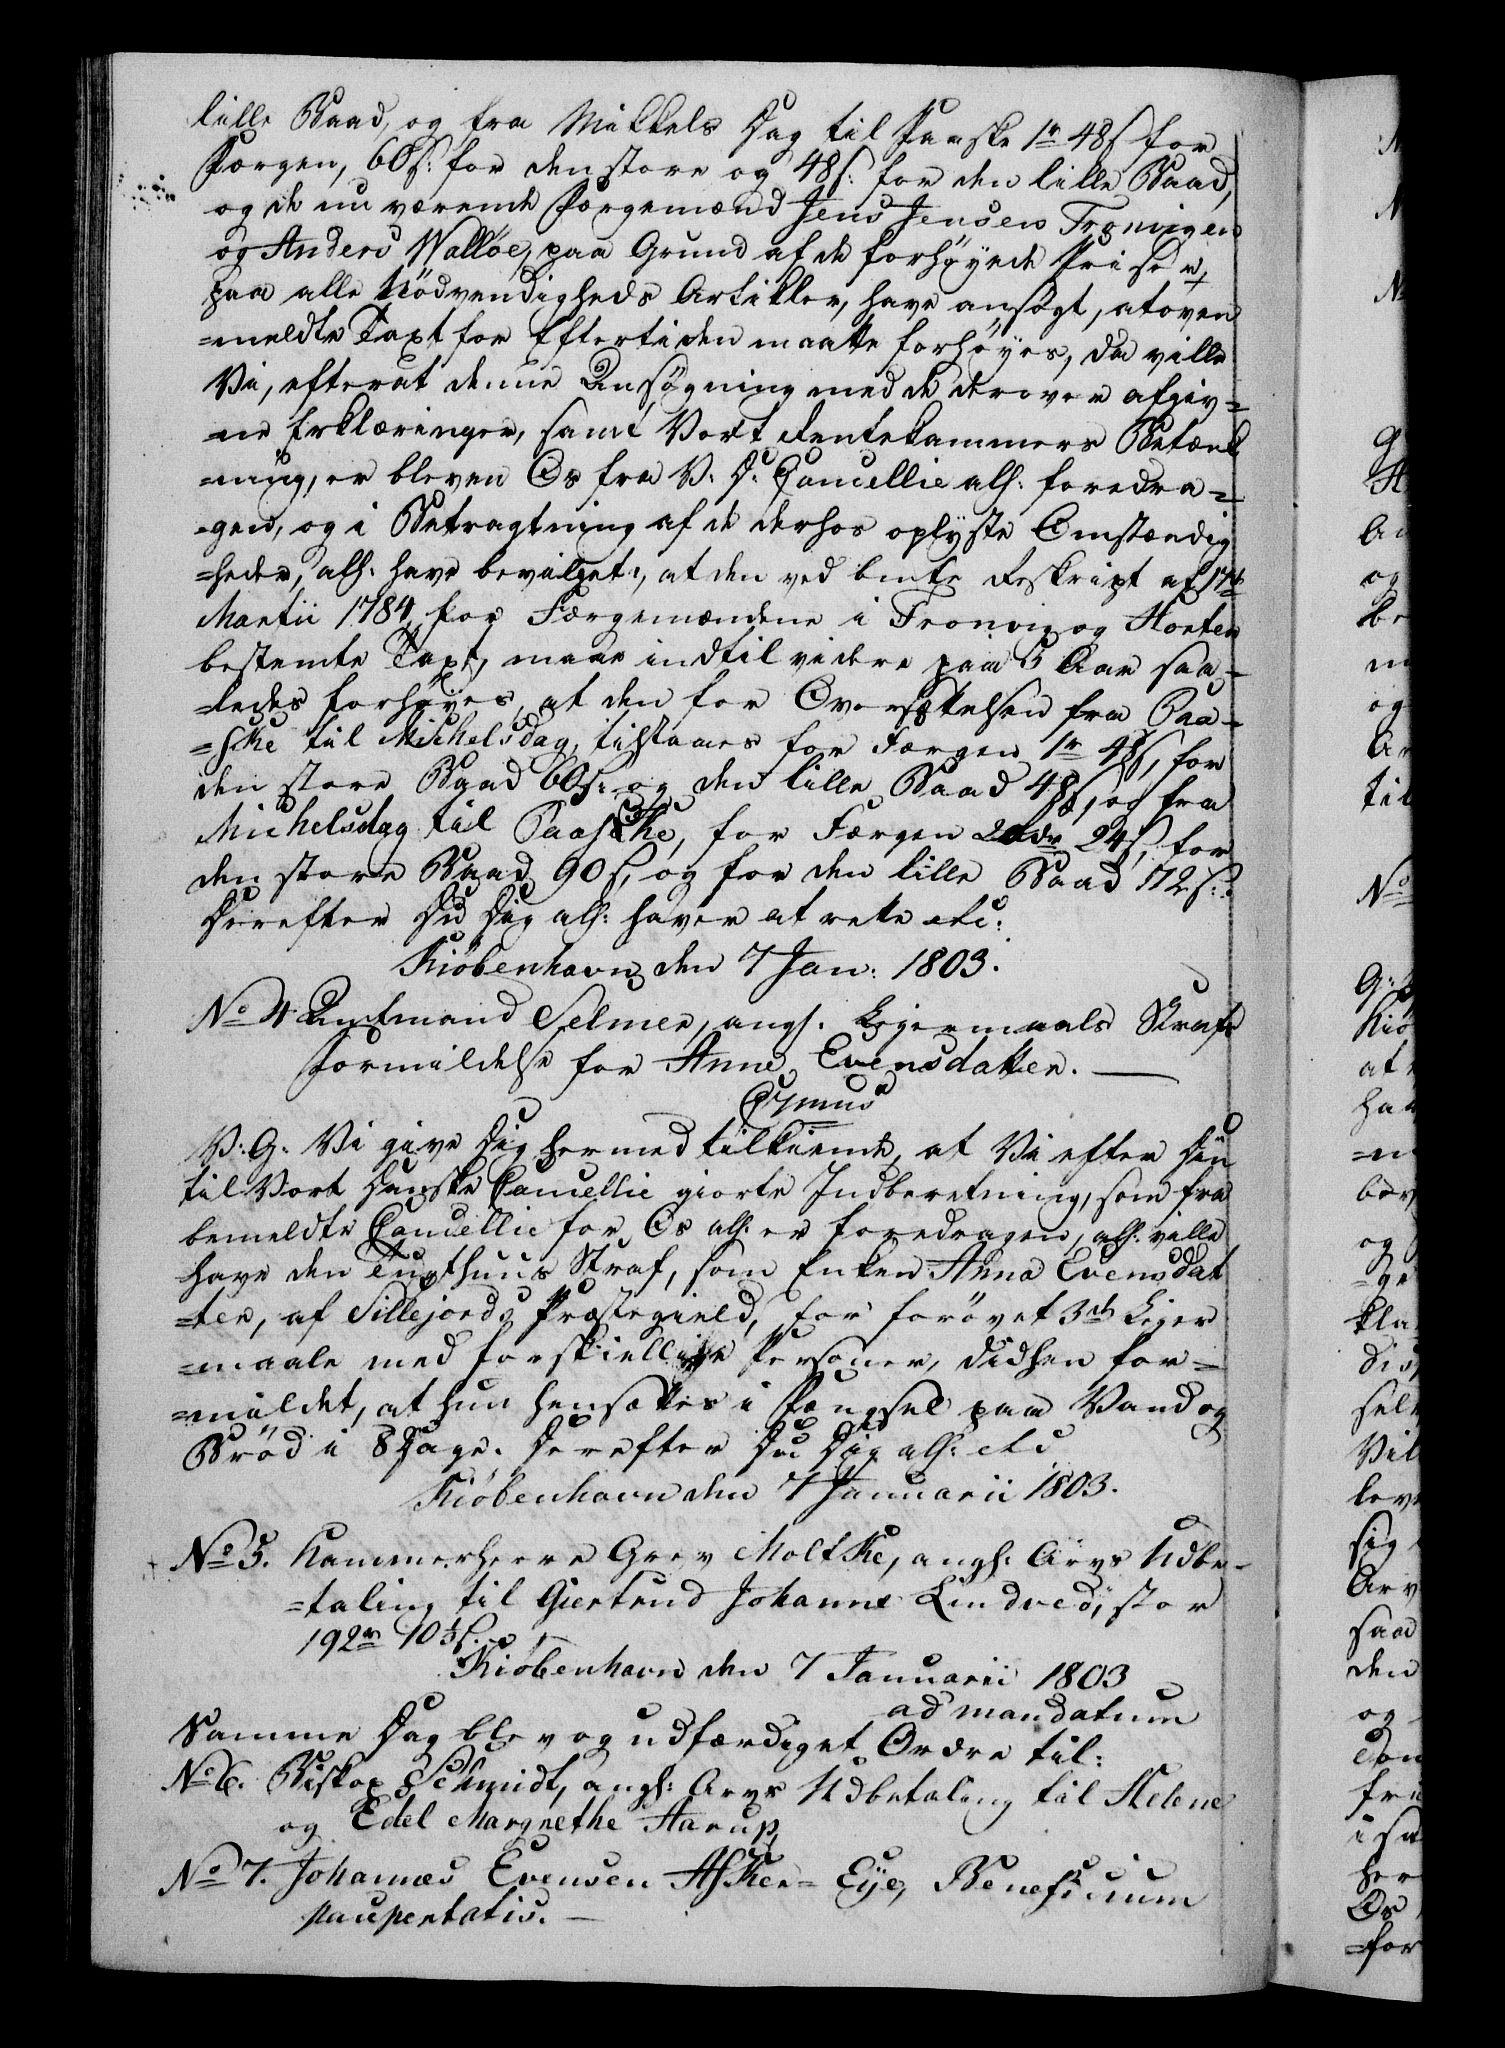 lille Baad, og fra Mikkels Dag til Paaske 1r 48ſ for
Færgen, 60ſ: for den store og 48ſ: for den lille Baad,
og de nu værende Færgemænd Jens Jensen Tronvigen
og Anders Walløe, paa Grund af de forhøyede Priser
paa alle Nödvendigheds Artikler, have ansøgt, at oven
=meldte Taxt for Eftertiden maatte forhøyes, da ville
Vi, efter at denne Ansøgning med de derover afgiv=
=ne Erklæringer, samt Vort Rentekammers Betænk
=ning, er bleven Os fra V: D: Cancellie all: foredra=
=gen, og i Betragtning af de derhos oplyste Omstændig
=heder, all: have bevilget, at den ved bmte Reskript af 17de
Martii 1784 for Færgemændene i Tronvig og Horten
bestemte Taxt, maae indtil videre paa 5 Aar saa=
=ledes forhøyes, at den for Oversættelsen fra Paa=
=ske til Michelsdag, tilstaaes for Færgen 1r 48ſ, for
den store Baad 60ſ: og den lille Baad 48ſ, og fra
Michelsdag til Paaske, for Færgen 2 rdr 24ſ, for
den store Baad 90ſ, og for den lille Baad 72ſ:.
Derefter Du Dig all: haver at rette etc:
Kiöbenhavn den 7 Jan: 1803.
No 4 Amtmand Selmer, angl. Leyermaals Strafs
Formildelse for Anne Evensdatter. —
V: G: Vi give Dig hermed tilkiende, at Vi efter Din
til Vort Danske Cancellie giorte Indberetning, som fra
bemeldte Cancellie for Os all: er foredragen, all: ville
have den Tugthuus Straf, som Enken Anna Evensdat
=ter, af Sillejords Præstegield, for forövet 3de Leyer
=maale med forskiellige Personer, didhen for=
=mildet, at hun hensættes i Fængsel paa Vand og
Bröd i 8 Dage. Derefter Du Dig all: etc
Kiöbenhavn den 7 Januarii 1803.
No 5. Kammerherre Grev Moltke, angl: Arvs Udbe=
=taling til Giertrud Johanne Lindved, stor
192r 10½ſ. —
Kiöbenhavn den 7 Januarii 1803
ad mandatum
Samme Dag blev og udfærdiget Ordre til:
No 6. Biskop Schmidt, angl: Arvs Udbetaling til Helene
og Edel Margrethe Aarup,
No 7. Johannes Evensen Asker= Eye, Beneficium
paupertatis. —